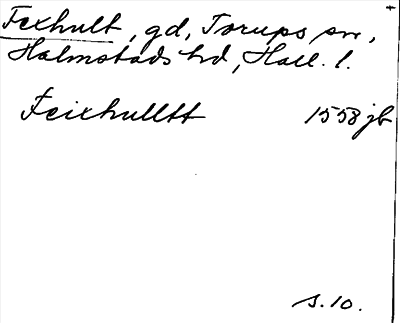 Fexhult, gd, Torups sn,
Halmstads hd, Hall. l.
Feixhulltt 1558 jb
s. 10.